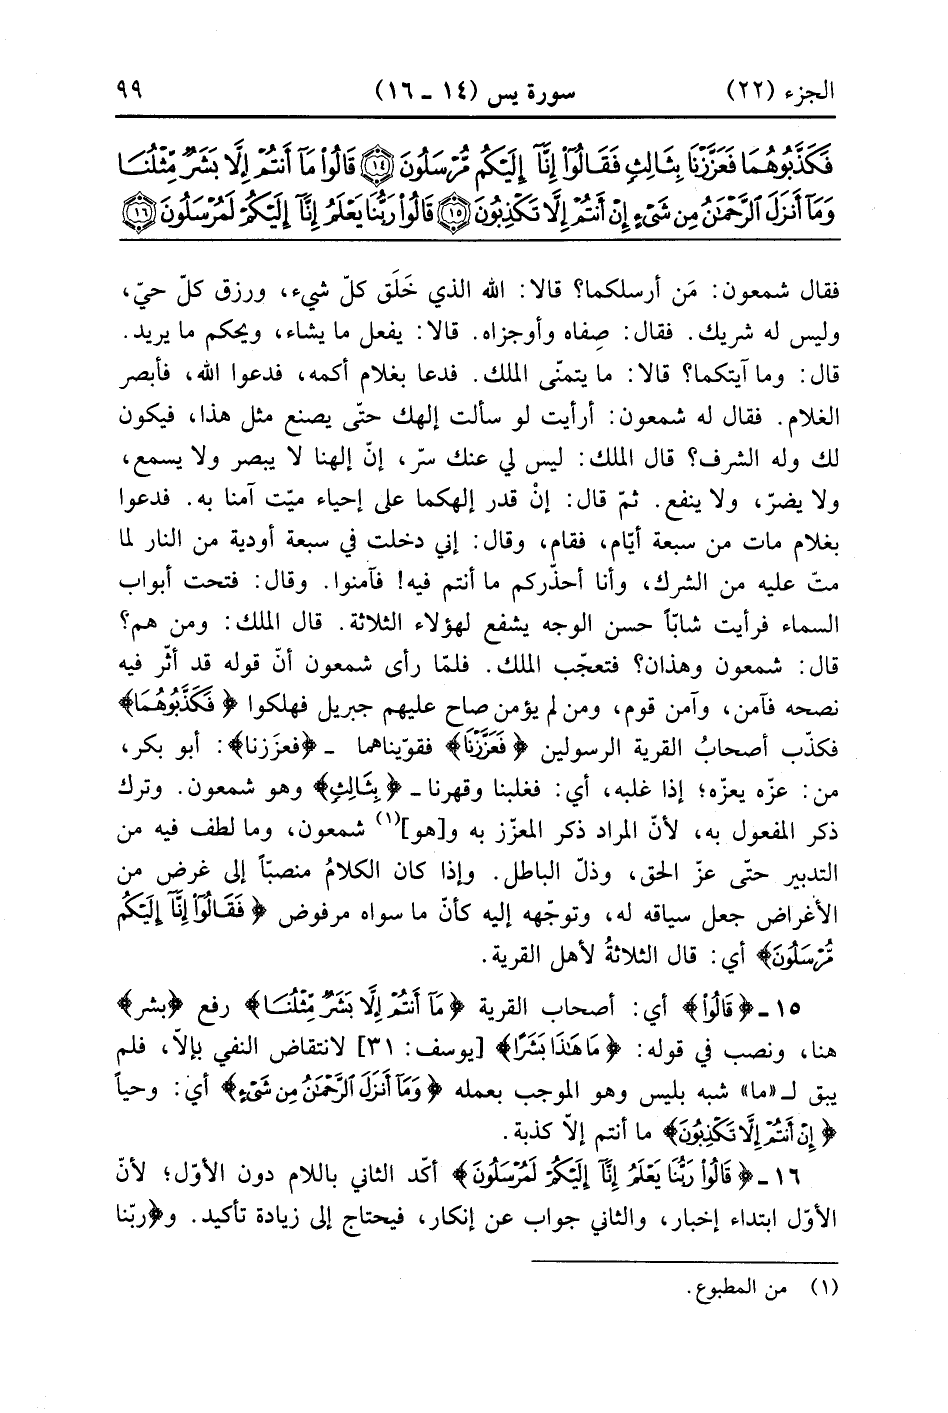 الجزء (٢٢) سورة يس (١٤ - ١٦) ٩٩
فَكَذَّبُوهُمَا فَعَزَّزْنَا بِثَالِثٍ فَقَالُوٓا۟ إِنَّآ إِلَيْكُم مُّرْسَلُونَ ١٤ قَالُوا۟ مَآ أَنتُمْ إِلَّا بَشَرٌ مِّثْلُنَا
وَمَآ أَنزَلَ ٱلرَّحْمَٰنُ مِن شَىْءٍ إِنْ أَنتُمْ إِلَّا تَكْذِبُونَ ١٥ قَالُوا۟ رَبُّنَا يَعْلَمُ إِنَّآ إِلَيْكُمْ لَمُرْسَلُونَ ١٦
فقال شمعون: مَن أرسلكما؟ قالا: الله الذي خَلَق كلّ شيء، ورزق كلّ حيّ،
وليس له شريك. فقال: صِفاه وأوجزاه. قالا: يفعل ما يشاء، ويحكم ما يريد.
قال: وما آيتكما؟ قالا: ما يتمنّى الملك. فدعا بغلام أكمه، فدعوا الله، فأبصر
الغلام. فقال له شمعون: أرأيت لو سألت إلهك حتّى يصنع مثل هذا، فيكون
لك وله الشرف؟ قال الملك: ليس لي عنك سرّ، إنّ إلهنا لا يبصر ولا يسمع،
ولا يضرّ، ولا ينفع. ثمّ قال: إنْ قدر إلهكما على إحياء ميّت آمنا به. فدعوا
بغلام مات من سبعة أيّام، فقام، وقال: إني دخلت في سبعة أودية من النار لما
متّ عليه من الشرك، وأنا أحذّركم ما أنتم فيه! فآمنوا. وقال: فتحت أبواب
السماء فرأيت شابّاً حسن الوجه يشفع لهؤلاء الثلاثة. قال الملك: ومن هم؟
قال: شمعون وهذان؟ فتعجّب الملك. فلمّا رأى شمعون أنّ قوله قد أثّر فيه
نصحه فآمن، وآمن قوم، ومن لم يؤمن صاح عليهم جبريل فهلكوا ﴿فَكَذَّبُوهُمَا﴾
فكذّب أصحابُ القرية الرسولين ﴿فَعَزَّزْنَا﴾ فقوّيناهما - ﴿فعزَزنا﴾: أبو بكر،
من: عزّه يعزّه؛ إذا غلبه، أي: فغلبنا وقهرنا - ﴿بِثَالِثٍ﴾ وهو شمعون. وترك
ذكر المفعول به، لأنّ المراد ذكر المعزّز به و[هو](١) شمعون، وما لطف فيه من
التدبير حتّى عزّ الحق، وذلّ الباطل. وإذا كان الكلامُ منصبّاً إلى غرض من
الأغراض جعل سياقه له، وتوجّهه إليه كأنّ ما سواه مرفوض ﴿فَقَالُوٓا۟ إِنَّآ إِلَيْكُم
مُّرْسَلُونَ﴾ أي: قال الثلاثةُ لأهل القرية.
١٥ - ﴿قَالُوا۟﴾ أي: أصحاب القرية ﴿مَآ أَنتُمْ إِلَّا بَشَرٌ مِّثْلُنَا﴾ رفع ﴿بشر﴾
هنا، ونصب في قوله: ﴿مَا هَٰذَا بَشَرًا﴾ [يوسف: ٣١] لانتقاض النفي بإلاّ، فلم
يبق لـ«ما» شبه بليس وهو الموجب بعمله ﴿وَمَآ أَنزَلَ ٱلرَّحْمَٰنُ مِن شَىْءٍ﴾ أي: وحياً
﴿إِنْ أَنتُمْ إِلَّا تَكْذِبُونَ﴾ ما أنتم إلاّ كذبة.
١٦ - ﴿قَالُوا۟ رَبُّنَا يَعْلَمُ إِنَّآ إِلَيْكُمْ لَمُرْسَلُونَ﴾ أكّد الثاني باللام دون الأوّل؛ لأنّ
الأوّل ابتداء إخبار، والثاني جواب عن إنكار، فيحتاج إلى زيادة تأكيد. و﴿ربّنا
(١) من المطبوع.